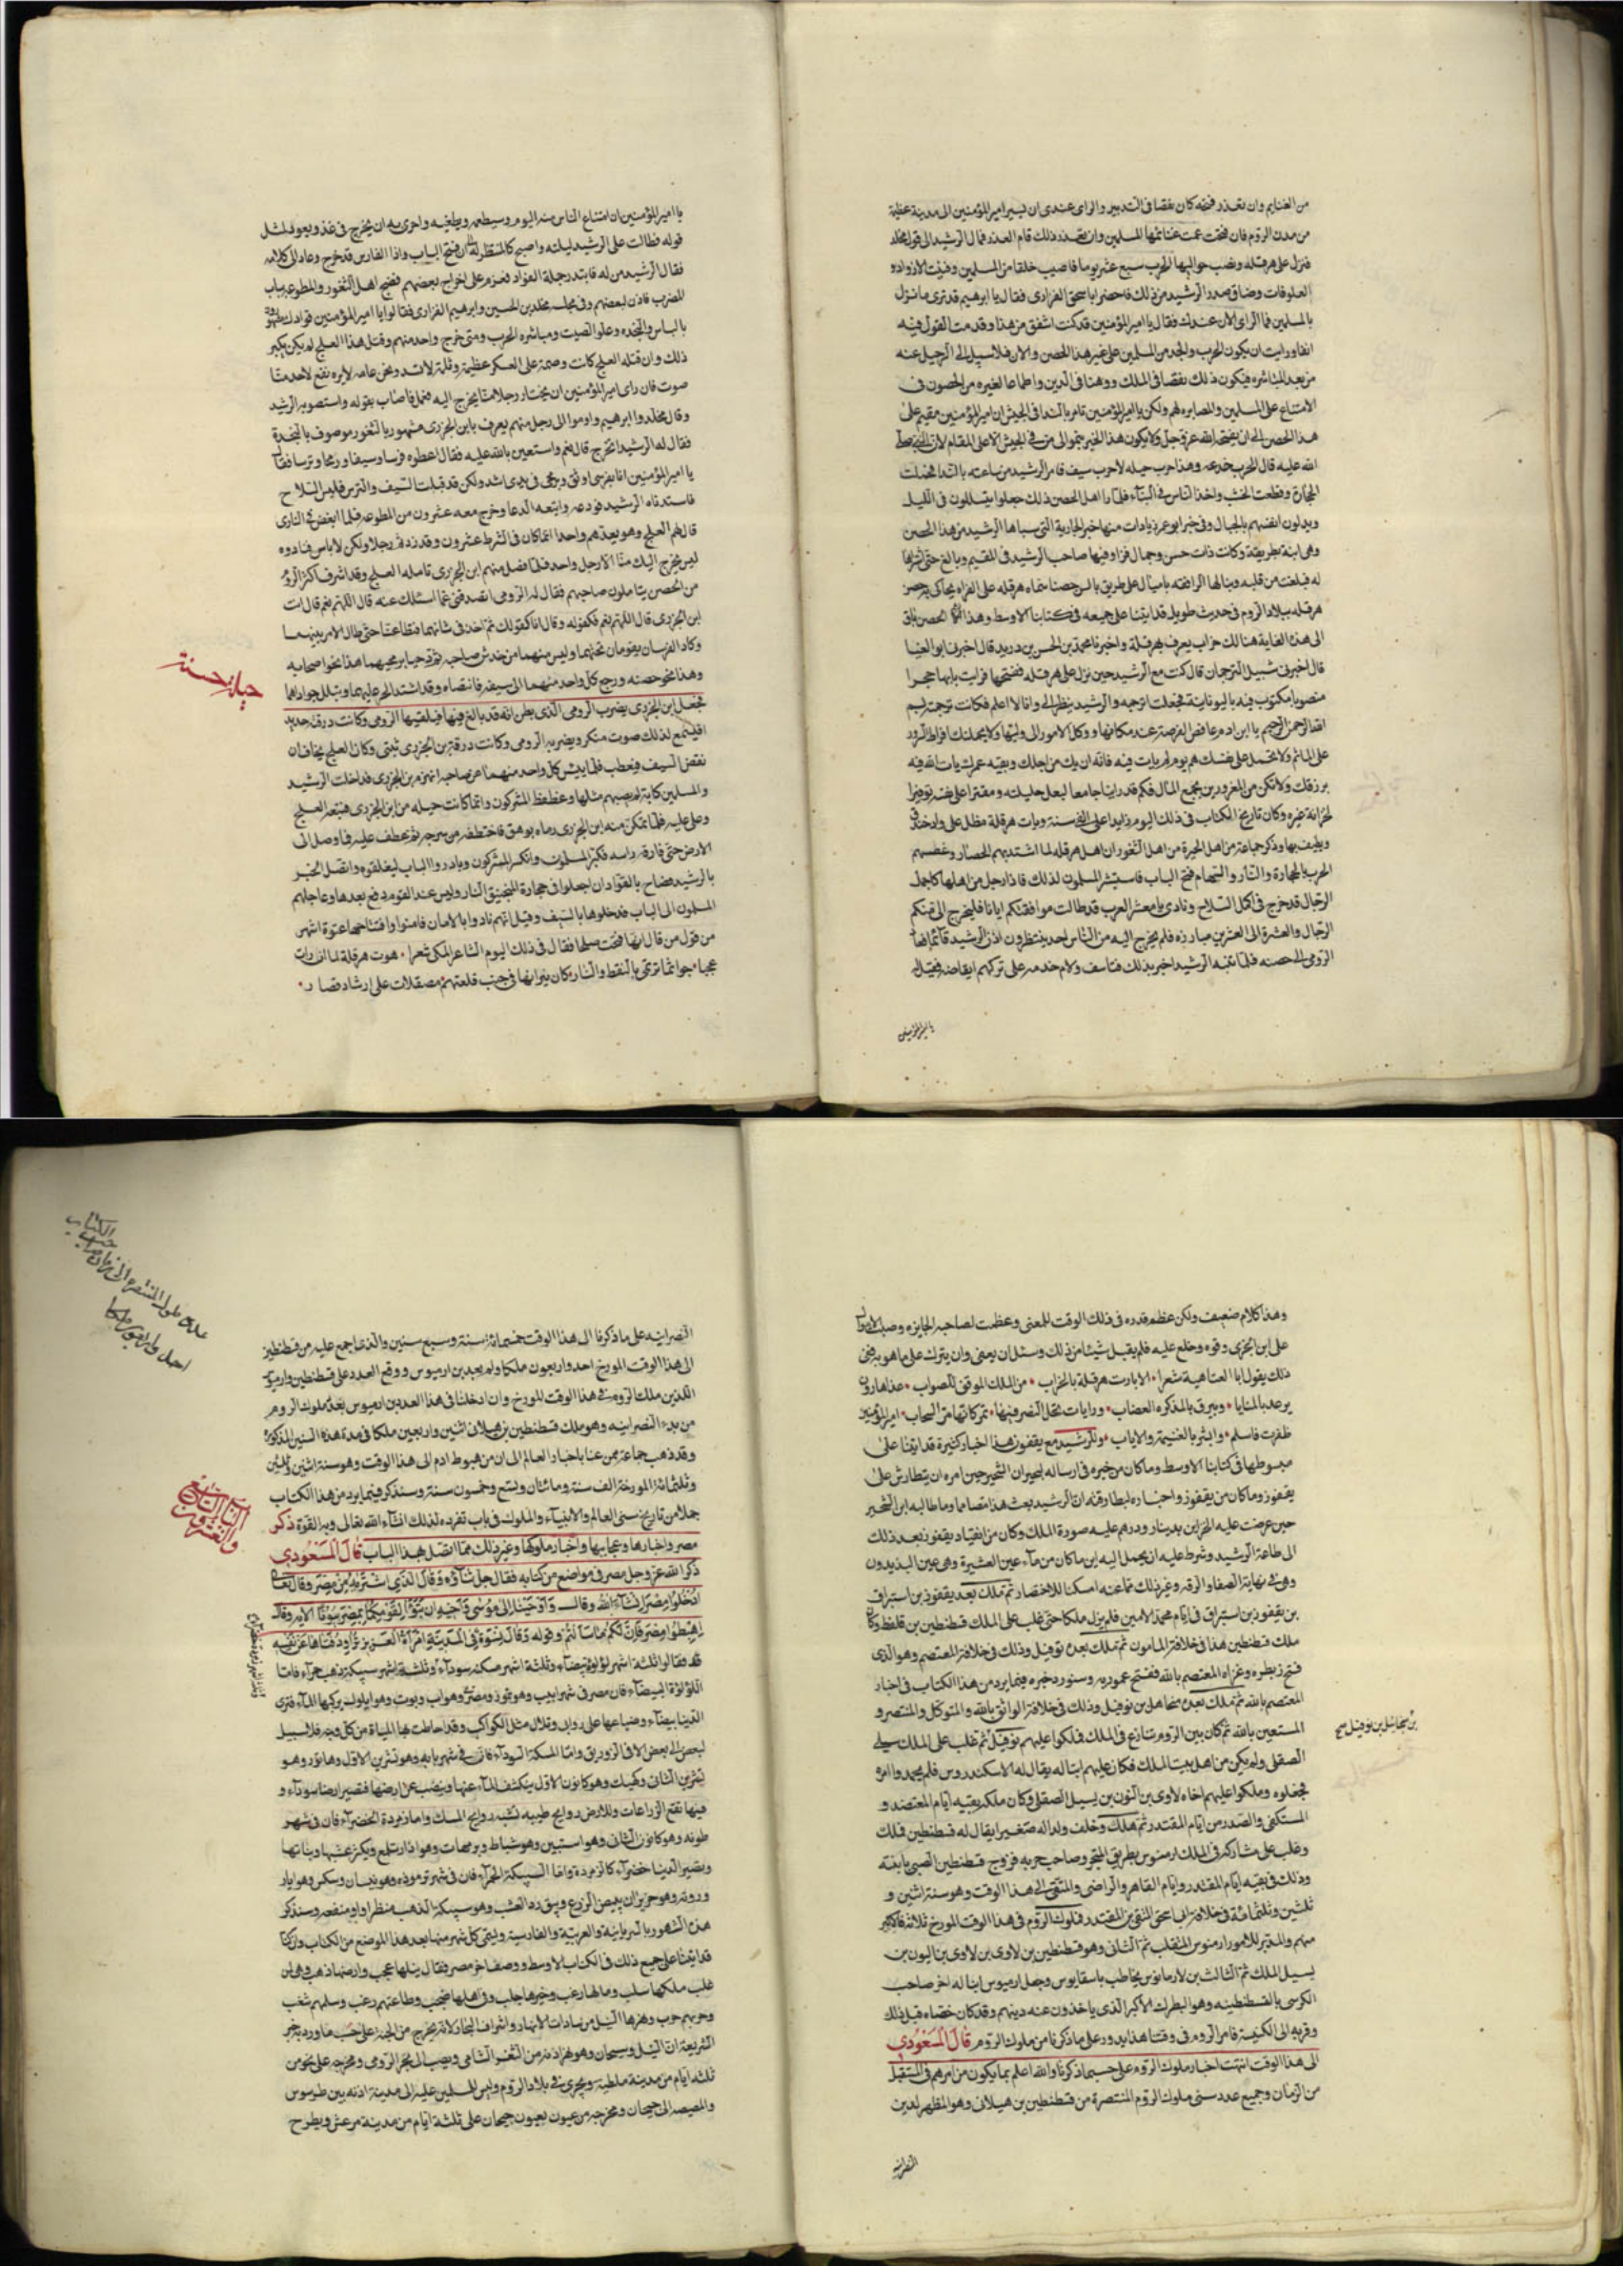 من الغنايم وان تعذر فتحه كان نقصا فى التدبير والراى عندى ان يسير امير المؤمنين الى مدينة عظيمة
من مدن الروم فان فتحت عمت غنائمها المسلمين وان تعذر ذلك قام العذر فمال الرشيد الى قول مخلد
فنزل على هرقله ونصب حواليها الحرب سبع عشر يوما فاصيب خلقا من المسلمين وفنيت الازواد و
العلوفات وضاق صدر الرشيد من ذلك فاحضر ابا اسحق الفزارى فقال يا ابرهيم قد ترى ما نزل
بالمسلمين فما الراى الان عندك فقال يا امير المؤمنين قد كنت اشفق من هذا وقدمت القول فيه
ورايت ان يكون الحرب والجد من المسلمين على غير هذا الحصن والان فلا سبيل الى الرحيل عنه
من بعد المباشره فيكون ذلك نقصا فى الملك ووهنا فى الدين واطماعا لغيره من الحصون فى
الامتناع على المسلمين والمصابره لهم ولكن يا امير المؤمنين تامر بالندا فى الجيش ان امير المؤمنين مقيم على
هذا الحصن الى ان يفتحه الله عز وجل
الله عليه قال الحرب خدعه وهذا حرب حيله لا حرب سيف فامر الرشيد من ساعته بالندا فحملت
الحجارة وقطعت الخشب واخذ الناس فى البناء فلما راا اهل الحصن ذلك جعلوا يتسللون فى الليل
ويدلون انفسهم بالحبال وفى خبر ابو عمر زيادات منها خبر الجارية التى سباها الرشيد من هذا الحصن
وهى ابنة بطريقه وكانت ذات حسن وجمال فزاد فيها صاحب الرشيد فى المقسم وبالغ حتى اشتراها
له فبلغت من قلبه وبنا لها الرافقه باميال على طريق بالس حصنا سماه هرقله على الفراه يحاكى به حصن
هرقله ببلاد الروم فى حديث طويل قد اتينا على جميعه فى كتابنا الاوسط وهذا الحصن باق
الى هذه الغاية هنالك خراب يعرف بهرقلة واخبرنا محمد بن الحسن بن دريد قال اخبرنا ابو العينا
قال اخبرنى شبيل الترجمان قال كنت مع الرشيد حين نزل على هرقله ففتحها فرايت بابها حجرا
منصوبا مكتوب فيه باليونانية فجعلت اترجمه والرشيد ينظر الى وانا لا اعلم فكانت ترجمته بسم
الله الرحمن الرحيم يا ابن ادم غافص الفرصة عند مكانها ووكل الامور الى وليها ولا يحملنك افراط السرور
على الماثم ولا تحمل على نفسك هم يوم لم يات فيه فانه ان يك من اجلك وبقيه عمرك يات الله فيه
برزقك ولا تكن من المغرورين بجمع المال فكم قد راينا جامعا لبعل حليلته ومقترا على نفسه توفيرا
لخزانة غيره وكان تاريخ الكتاب فى ذلك اليوم زايدا على الفى سنة وباب هرقلة مطل على واد وخندق
ويطيف بها وذكر جماعة من اهل الخبرة من اهل الثغور ان اهل هرقله لما اشتد بهم الحصار وعضهم
الحرب بالحجارة والنار والسهام فتح الباب فاستبشر المسلمون لذلك فاذا رجل من اهلها كاجمل
الرجال قد خرج فى اكمل السلاح ونادى يا معشر العرب قد طالت موافقتكم ايانا فليخرج الى منكم
الرجال والعشرة الى العشرين مبارزه فلم يخرج اليه من الناس احد ينتظرون اذن الرشيد
الرومى الى حصنه فلما تنبه الرشيد اخبر بذلك فتاسف ولام خدمه على تركهم ايقاظه فقيل له
يا امير المؤمنين
يا امير المؤمنين ان امتناع الناس منه اليوم وسيطمعه ويطغيه واحرى به ان يخرج فى غد ويعود لمثل
قوله فطالت على الرشيد ليلته واصبح كالمنتظر له اذ فتح الباب واذا الفارس قد خرج وعاد الى كلامه
فقال الرشيد من له فابتدر جلة القواد فعزم على اخراج بعضهم فضج اهل الثغور والمطوعه بباب
المضرب فاذن لبعضهم وفى مجلسه مخلد بن الحسين وابرهيم الفزارى فقالوا يا امير المؤمنين قوادك مشهورون
بالباس والنجده وعلو الصيت ومباشره الحرب ومتى خرج واحد منهم وقتل هذا العلج لم يكن يكبر
ذلك وان قتله العلج كانت وصمة على العسكر عظيمة وثلمة لا تسد ونحن عامه لا يرتفع لاحد منا
صوت فان راى امير المؤمنين ان يختار رجلا منا يخرج اليه فعل فاصاب بقوله واستصوبه الرشيد
وقال مخلد وابرهيم واوموا الى رجل منهم يعرف بابن الجزرى مشهور بالثغور موصوف بالنجدة
فقال له الرشيد اتخرج قال نعم واستعين بالله عليه فقال اعطوه فرسا وسيفا ورمحا وترسا فقال
يا امير المؤمنين انا بفرسى اوثق ورمحى فى يدى اشد ولكن قد قبلت السيف والترس فلبس السلاح
فاستدناه الرشيد فودعه واتبعه الدعا وخرج معه عشرون من المطوعه فلما انقض فى الوادى
قال لهم العلج وهو يعدهم واحدا انما كان فى الشرط عشرون وقد زدتم رجلا ولكن لا باس فنادوه
ليس يخرج اليك منا الا رجل واحد فلما فصل منهم ابن الجزرى تامله العلج وقد اشرف اكثر الروم
من الحصن يتاملون صاحبهم فقال له الرومى اتصدقنى عما اسئلك عنه قال اللهم نعم قال انت
ابن الجزرى قال اللهم نعم فكفر له وقال انا كفو لك ثم اخذ فى شانهما فتطاعنا حتى طال الامر بينهما
وكاد الفرسان يقومان تحتهما وليس منهما من خدش صاحبه ثم زجا برمحيهما هذا نحو اصحابه
وهذا نحو حصنه ورجع كل واحد منهما الى سيفه فانتضاه وقد اشتد الحر عليهما وتبلد جواداهما
فجعل ابن الجزرى يضرب الرومى الذى يظن انه قد بالغ فيها فيتلقيها الرومى وكانت درقته حديد
فيسمع لذلك صوت منكر ويضربه الرومى وكانت درقة ابن الجزرى تبتى وكان العلج يخاف ان
نقض السيف فيعطب فلما يئس كل واحد منهما من صاحبه انهزم ابن الجزرى فداخلت الرشيد
والمسلمين كابة لم يصبهم مثلها وعطعط المشركون وانما كانت حيله من ابن الجزرى فتبعه العلج
وعلى عليه فلما تمكن منه ابن الجزرى رماه بوهق فاختطفه من سرجه ثم عطف عليه فما وصل الى
الارض حتى فارقه راسه فكبر المسلمون وانكسر المشركون وبادروا الباب ليغلقوه واتصل الخبر
بالرشيد فصاح بالقواد ان اجعلوا فى حجارة المنجنيق النار وليس عند القوم دفع بعدها وعاجلهم
المسلمون الى الباب فدخلوها بالسيف وقيل انهم نادوا بالامان فامنوا وافتتاحها عنوة اشهر
من قول من قال انها فتحت صلحا فقال فى ذلك اليوم الشاعر المكى شعرا هوت هرقلة لما ان رات
عجبا جوا ثما ترتمى بالنفط والنار كان نيراننا فى جنب قلعتهم مصقلات على ارشاد قصار
حيلة حسنة
وهذا كلام ضعيف ولكن عظم قدره فى ذلك الوقت للمعنى وعظمت لصاحبه الجايزه وصبت الاموال
على ابن الجزرى وقود وخلع عليه فلم يقبل شيئا من ذلك وسئل ان يعفى وان يترك على ما هو به ففى
ذلك يقول ابا العتاهية شعرا الا بادت هرقلة بالخراب من الملك الموفق للصواب غدا هارون
يرعد بالمنايا ويبرق بالمذكره العضاب ورايات تحل النصر فيها تمر كانها مر السحاب امير المؤمنين
ظفرت فاسلم وابشر بالغنيمة والاياب وللرشيد مع يقفور هذا اخبار كثيرة قد اتينا على
مبسوطها فى كتابنا الاوسط وما كان من خبره فى ارساله لبحير ان الشخير حين امره ان يتطارش على
يقفور وما كان من يقفور واخباره لبطارقته ان الرشيد بعث هذا متصامما وما طالبه ابن الشخير
حين عرضت عليه الخزاين بدينار ودرهم عليه صورة الملك وكان من انقياد يقفور بعد ذلك
الى طاعة الرشيد وشرط عليه ان يحمل اليه اين ما كان من ماء عين العشيرة وهى عين البذيدون
وهى فى نهاية الصفا والرقه وغير ذلك مما عنه امسكنا للاختصار ثم ملك بعد يقفور بن استبراق
بن يقفور بن استبراق فى ايام محمد الامين فلم يزل ملكا حتى غلب على الملك قسطنطين بن قلفط وكان
ملك قسطنطين هذا فى خلافة المامون ثم ملك بعده توفيل وذلك فى خلافة المعتصم وهو الذى
فتح زبطره وغزاه المعتصم بالله ففتح عموريه وسنورد خبره فيما يرد من هذا الكتاب فى اخبار
المعتصم بالله ثم ملك بعده ميخائيل بن توفيل وذلك فى خلافة الواثق بالله والمتوكل والمنتصر و
المستعين بالله ثم كان بين الروم تنازع فى الملك فملكوا عليهم توفيل ثم غلب على الملك بسيل
الصقلى ولم يكن من اهل بيت الملك فكان عليهم ابنا له يقال له الاسكندروس فلم يحمدوا امره
فخلعوه وملكوا عليهم اخاه لاوى بن اليون بن بسيل الصقلى وكان ملكه بقيه ايام المعتضد و
المستكفى والصدر من ايام المقتدر ثم هلك وخلف ولدا له صغيرا يقال له قسطنطين فملك
وغلب على مشاركه فى الملك ارمنوس بطريق البحر وصاحب حربه فزوج قسطنطين الصبى بابنته
وذلك فى بقيه ايام المقتدر وايام القاهر والراضى والمتقى الى هذا الوقت وهو سنة اثنين و
ثلثين وثلثمائة فى خلافة ابى اسحق المتقى بن المقتدر فملوك الروم فى هذا الوقت المورخ ثلاثه فاكبر
منهم والمدبر للامور ارمنوس المتغلب ثم الثانى وهو قسطنطين بن لاوى بن لاوى بن اليون بن
بسيل الملك ثم الثالث بن لارمانوس يخاطب باسقابوس وجعل ارميوس ابنا له اخر صاحب
الكرسى بالقسطنطينيه وهو البطرك الاكبر الذى ياخذون عنه دينهم وقد كان خصاه قبل ذلك
وقربه الى الكنيسة فامر الروم فى وقتنا هذا يدور على ما ذكرنا من ملوك الروم قال المسعودي
الى هذا الوقت انتهت اخبار ملوك الروم على حسبما ذكرنا والله اعلم بما يكون من امرهم فى المستقبل
من الزمان وجميع عدد سنى ملوك الروم المنتصرة من قسطنطين بن هيلانى وهو المظهر لدين
النصرانيه
بن ميخائيل بن توفيل صح
النصرانيه على ما ذكرنا الى هذا الوقت خمسمائة سنة وسبع سنين والذى اجمع عليه من قسطنطين
الى هذا الوقت المورخ احد واربعون ملكا ولم يعد بن ارميوس ووقع العدد على قسطنطين وارميوس
اللذين ملك الروم فى هذا الوقت المورخ وان ادخلنا فى هذا العدد بن ارميوس بعد ملوك الروم
من بدء النصرانيه وهو ملك قسطنطين بن هيلانى اثنين واربعين ملكا فى مدة هذه السنين المذكورة
وقد ذهب جماعة ممن عنا باخبار العالم الى ان من هبوط ادم الى هذا الوقت وهو سنة اثنين وثلثين
وثلثمائة المورخة الف سنة ومائتان وتسع وخمسون سنة وسنذكر فيما يرد من هذا الكتاب
جملا من تاريخ سنى العالم والانبياء والملوك فى باب نفرده لذلك انشاء الله تعالى وبه القوة ذكر
مصر واخبارها وعجايبها واخبار ملوكها وغير ذلك مما اتصل بهذا الباب قال المسعودي
ذكر الله عز وجل مصر فى مواضع من كتابه فقال جل ثناؤه وقال الذى اشتريه من مصر وقال تعالى
ادخلوا مصر انشاء الله وقال واوحينا الى موسى واخيه ان تبوا لقومكما بمصر بيوتا الايه وقال
اهبطوا مصر فان لكم ما سالتم وقوله وقال نسوة فى المدينة امراة العزيز تراود فتاها عن نفسه
قد فقالوا ثلثة اشهر لؤلؤة بيضاء وثلثة اشهر مسكه سوداء وثلثة اشهر سبيكة ذهب حمراء فاما
اللؤلؤة البيضاء فان مصر فى شهر ابيب وهو تموز ومصرى وهو اب وتوت وهو ايلول يركبها الماء فترى
الدنيا بيضاء وضياعها على روابى وتلال مثل الكواكب وقد احاطت بها المياة من كل وجه فلا سبيل
لبعض الى بعض الا فى الزواريق واما المسكة السوداء فان فى شهر بابه وهو تشرين الاول وهاتور وهو
تشرين الثانى وكيهك وهو كانون الاول ينكشف الماء عنها وينضب عن ارضها فتصير ارضا سوداء و
فيها تقع الزراعات وللارض روايح طيبه تشبه روايح المسك واما زمردة الخضراء فان فى شهر
طوبه وهو كانون الثانى وامشير وهو شباط وبرمهات وهو اذار تلمع ويكثر عشبها ونباتها
وتصير الدنيا خضراء كالزمردة واما السبيكة الحمراء فان فى شهر برموذه وهو نيسان وبشنس وهو ايار
وبونه وهو حزيران يبيض الزرع ويتورد العشب وهو سبيكة الذهب منظرا ومنفعه وسنذكر
هذه الشهور بالسريانية والعربية والفارسية ونسمى كل شهر منها بعد هذا الموضع من الكتاب وان كنا
قد اتينا على جميع ذلك فى الكتاب الاوسط ووصف اخر مصر فقال نيلها عجب وارضها ذهب وهى لمن
غلب ملكها سلب ومالها رغب وخيرها جلب وفى اهلها صخب وطاعتهم رهب وسلمهم شغب
وحربهم حرب ونهرها النيل من سادات الانهار واشراف البحار لانه يخرج من الجنة على حسب ما ورد به خبر
الشريعة ان النيل وسيحان وهو نهر اذنه من الثغر الشامى ويصب الى بحر الرومى ومخرجه على نحو من
ثلثه ايام من مدينة ملطيه ويجرى فى بلاد الروم وليس للمسلمين عليه الا مدينة اذنه بين طرسوس
والمصيصه الى جيحان ومخرجه من عيون بعيون جيحان على ثلثة ايام من مدينة مرعش ويطرح
الباب الثلثون
عدة ملوك المتنصرة الى زمان صاحب الكتاب
احد واربعون ملكا